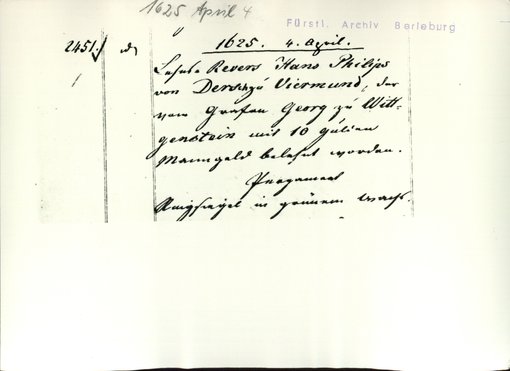 1625 April 4
Fürstl. Archiv Berleburg
2451.
1625. 4. April.
Lehns-Revers Hans Philips
von Dersch zu Viermund, der
vom Grafen Georg zu Witt-
genstein mit 10 Gulden
Manngeld belehnt worden.
Pergament
Ringsiegel in grünem Wachs.